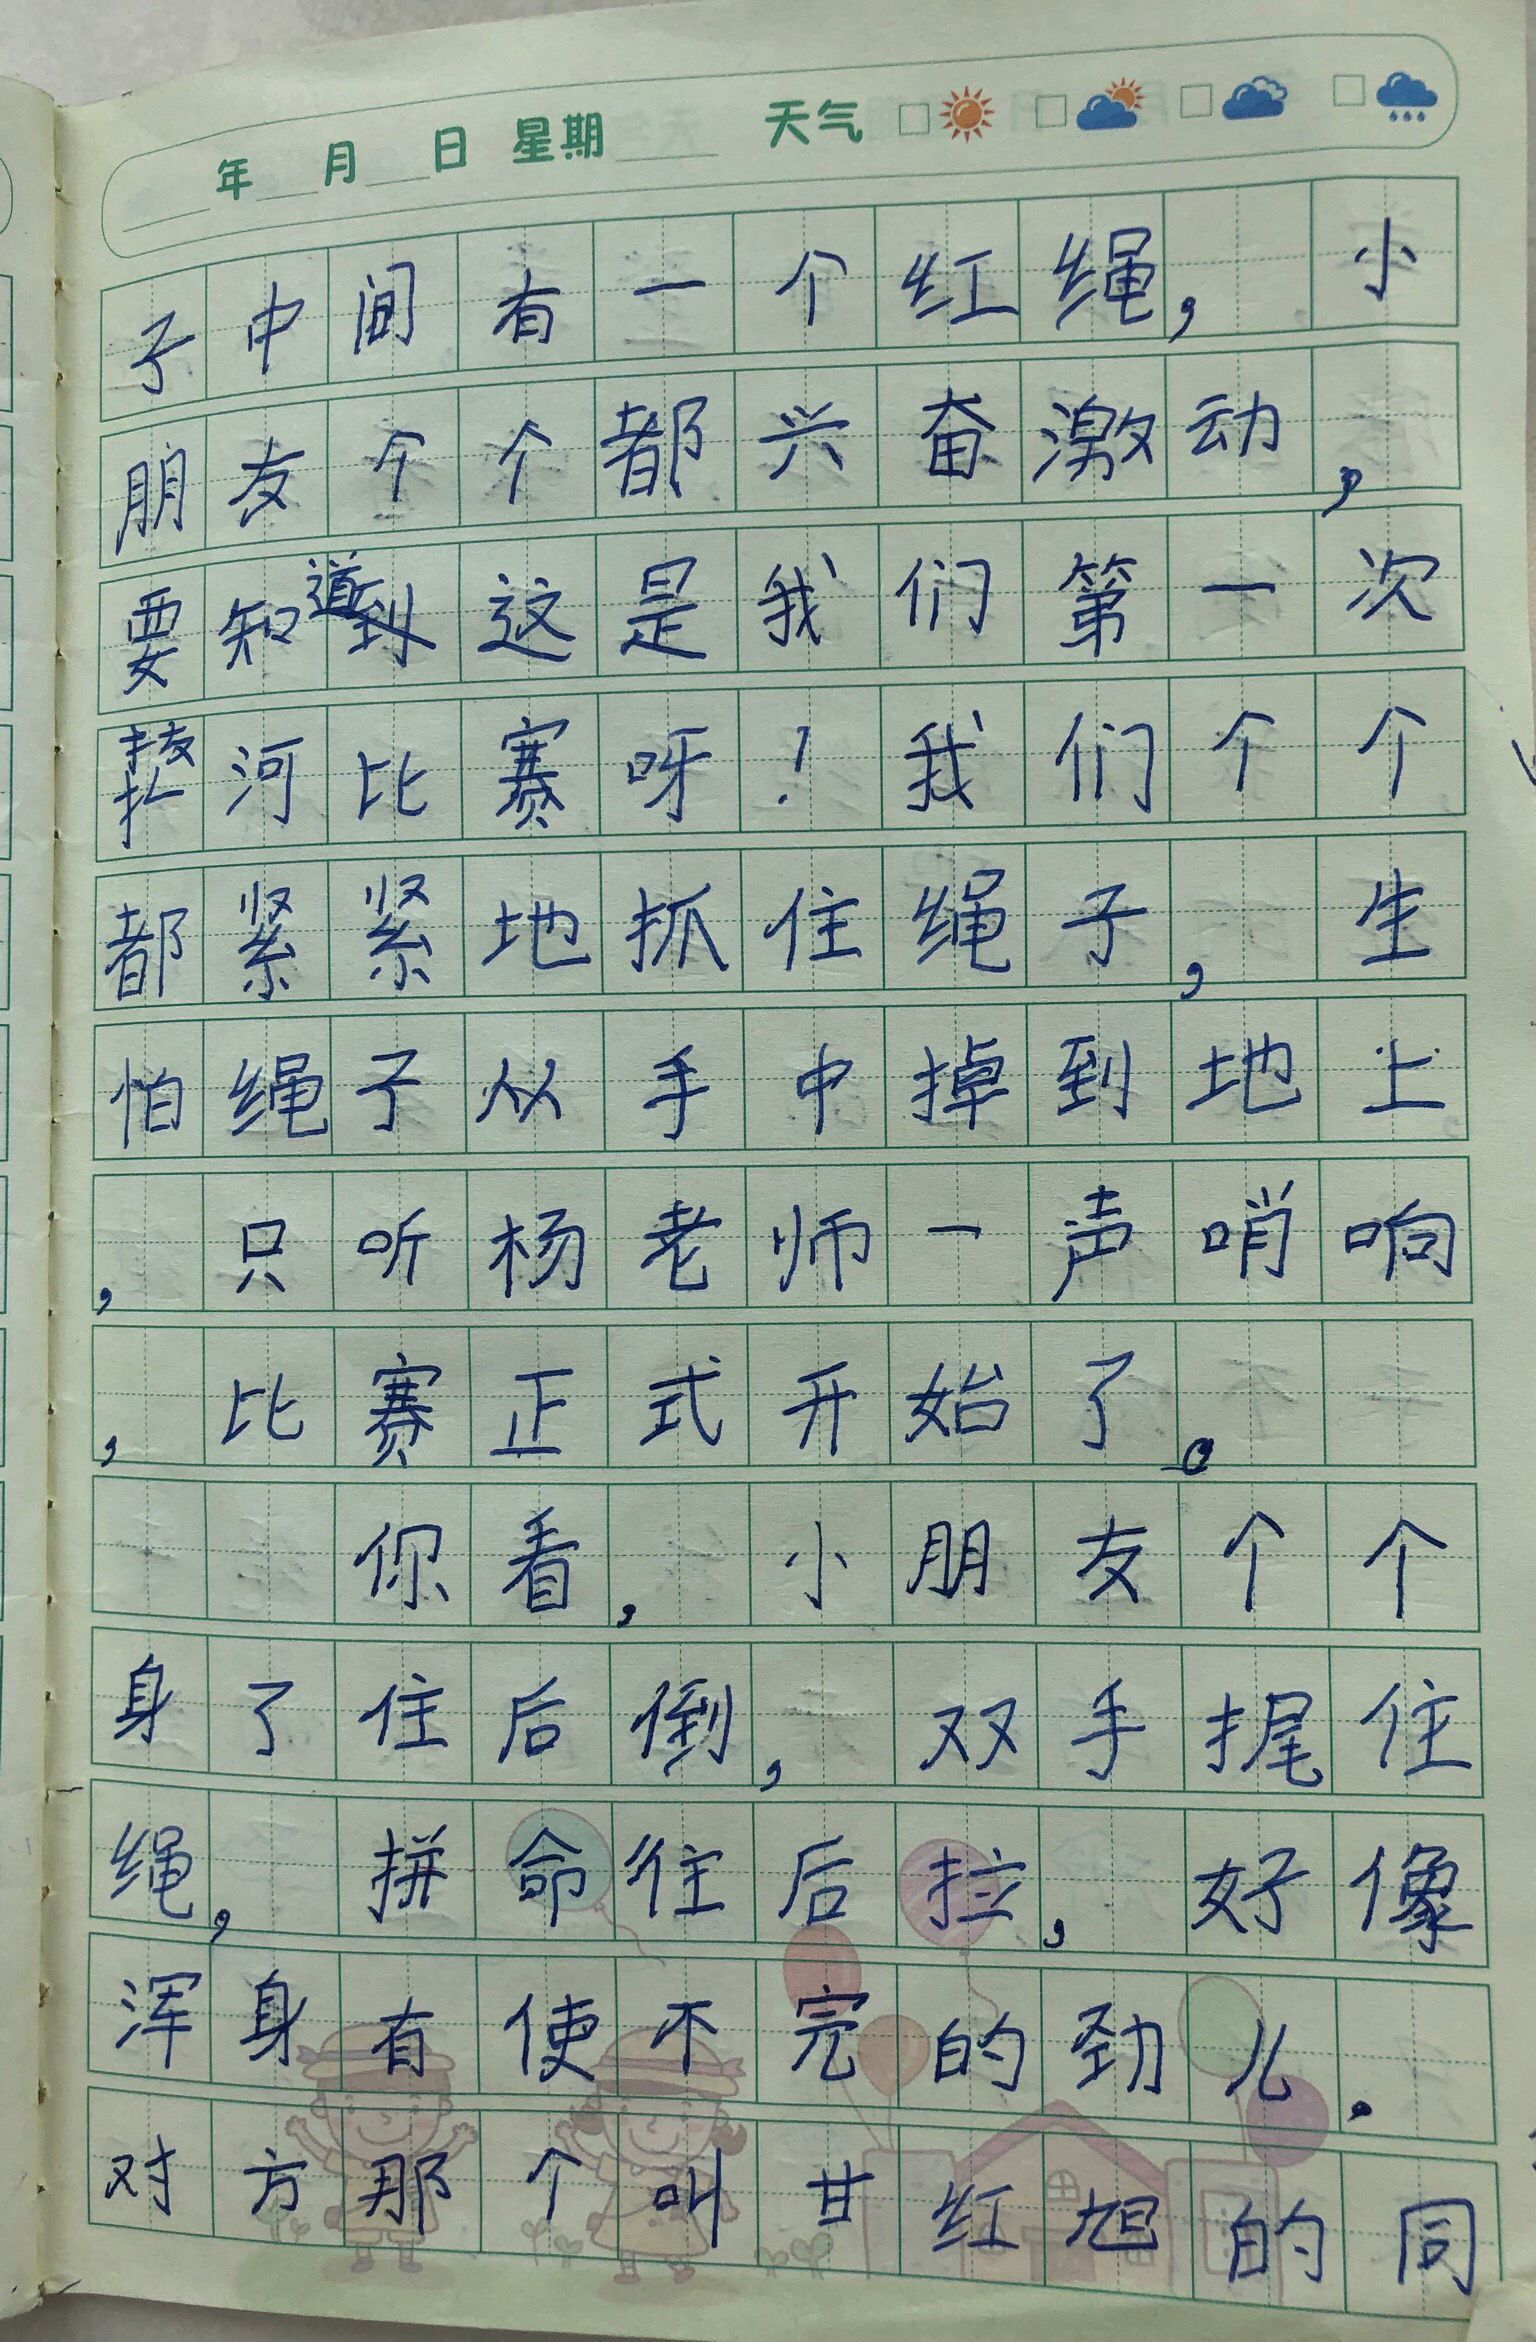 年 月 日 星期 天气
子中间有一个红绳，小
朋友个个都兴奋激动，
要知道到这是我们第一次
拔河比赛呀！我们个个
都紧紧地抓住绳子，生
怕绳子从手中掉到地上
，只听杨老师一声哨响
，比赛正式开始了。
你看，小朋友个个
身了住后倒，双手握住
绳，拼命往后拉，好像
浑身有使不完的劲儿.
对方那个叫甘红旭的同